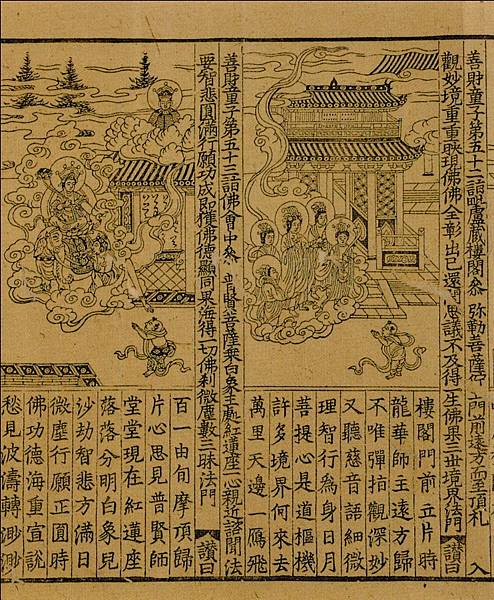 善財童子第五十二詣毗盧藏樓閣叅 弥勒菩薩佇立門前遠方而至頂札 入
觀妙境重重現佛佛全彰出已還閇思議不及得一生佛果三世境界法門 讃曰
樓閣門前立片時
龍華師主遠方歸
不唯彈指觀深妙
又聽慈音語細微
理智行為身日月
菩提心是道樞機
許多境界何來去
萬里天邊一鴈飛
善財童子第五十三詣佛會中叅 普賢菩薩乗白象王䖏紅蓮座一心親近諮聞法
要智悲圓滿行願功成即獲佛德顯同果海得一切佛刹微塵數三昧法門 讃曰
百一由旬摩頂歸
片心思見普賢師
堂堂現在紅蓮座
落落分明白象兒
沙劫智悲方滿日
微塵行願正圓時
佛功德海重宣説
愁見波濤轉渺渺